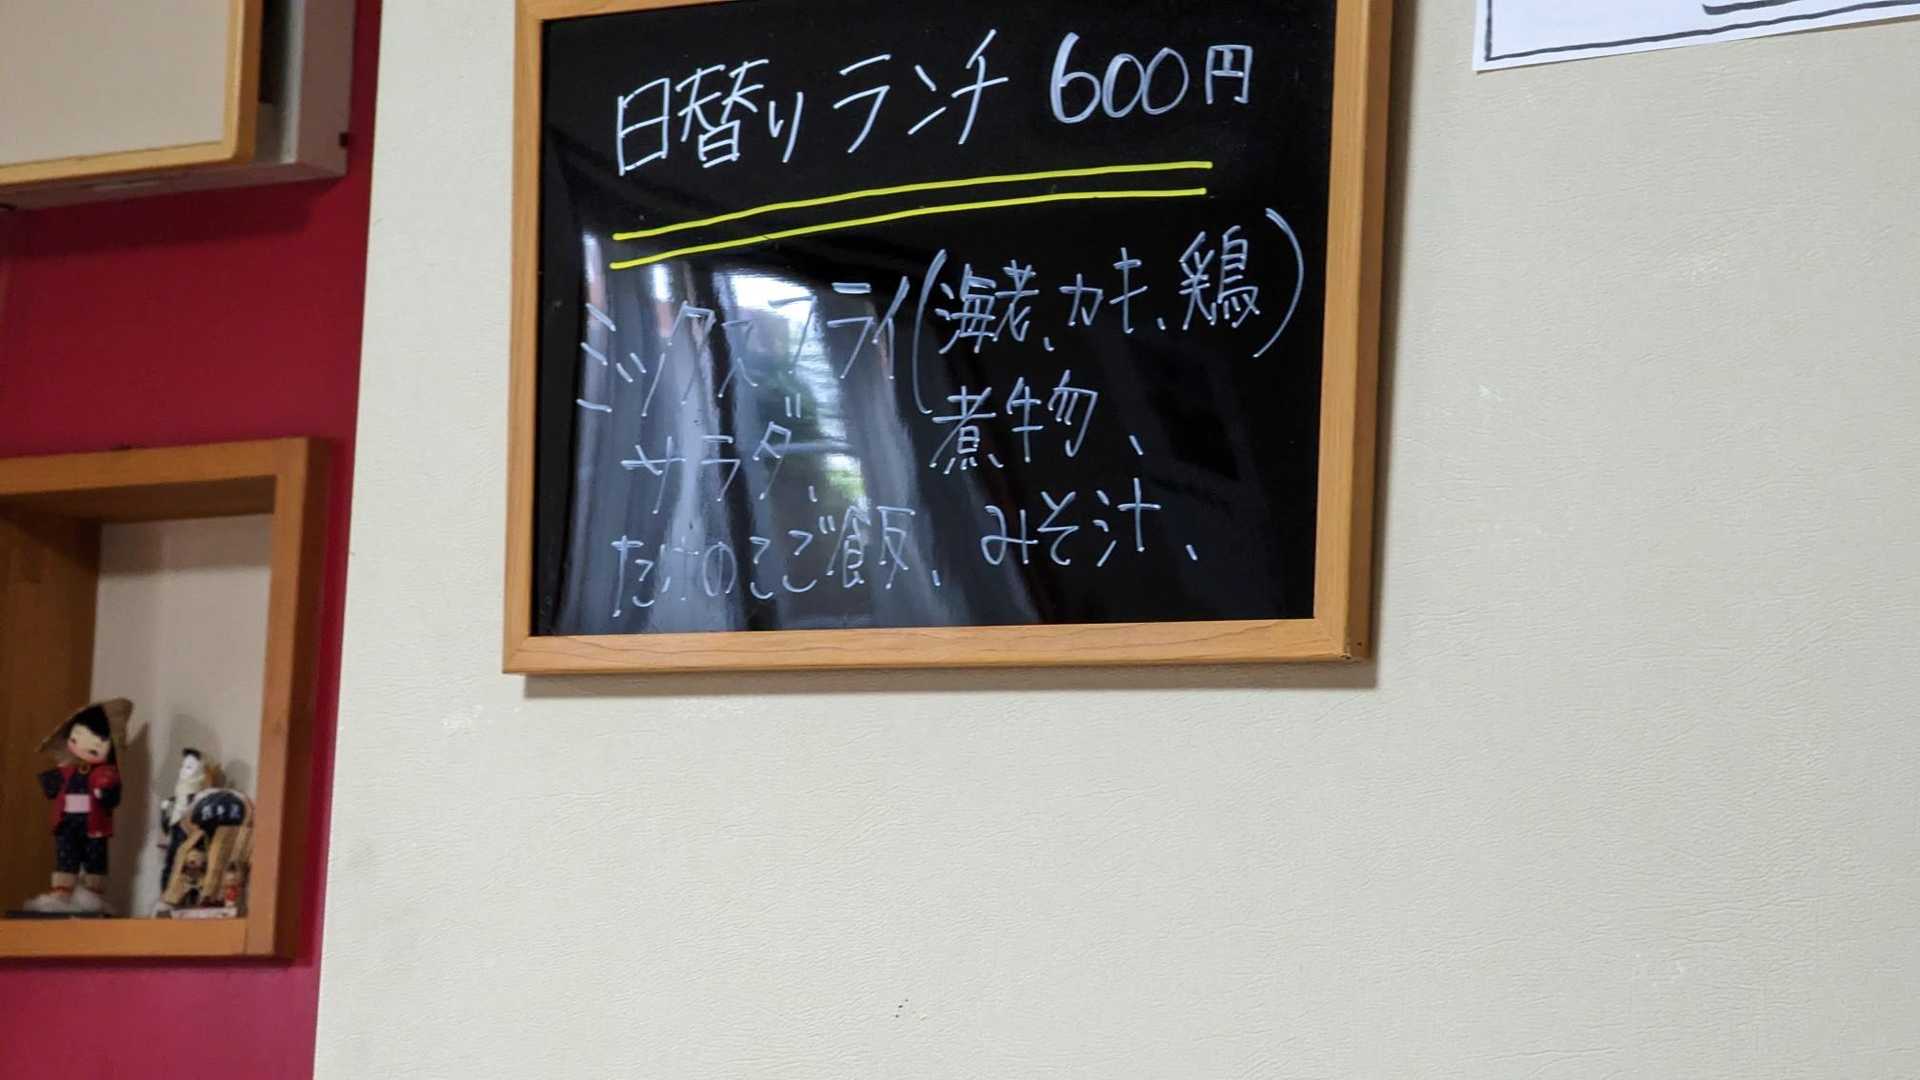 日替りランチ 600円
ミックスフライ(海老、カキ、鶏)
サラダ、煮物、
たけのこご飯、みそ汁、